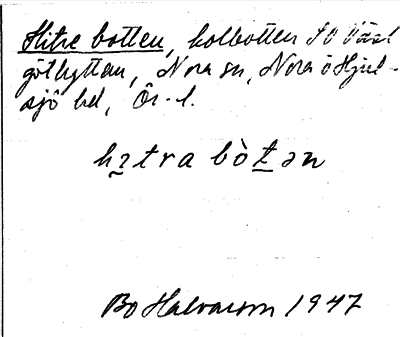 Hitre botten, kolbotten SO Väst
götlhyttan, Nora sn, Nora o Hjul-
sjö bel, Ör. l.
hɪtra bòt̲ən
Bo Halvarson 1947